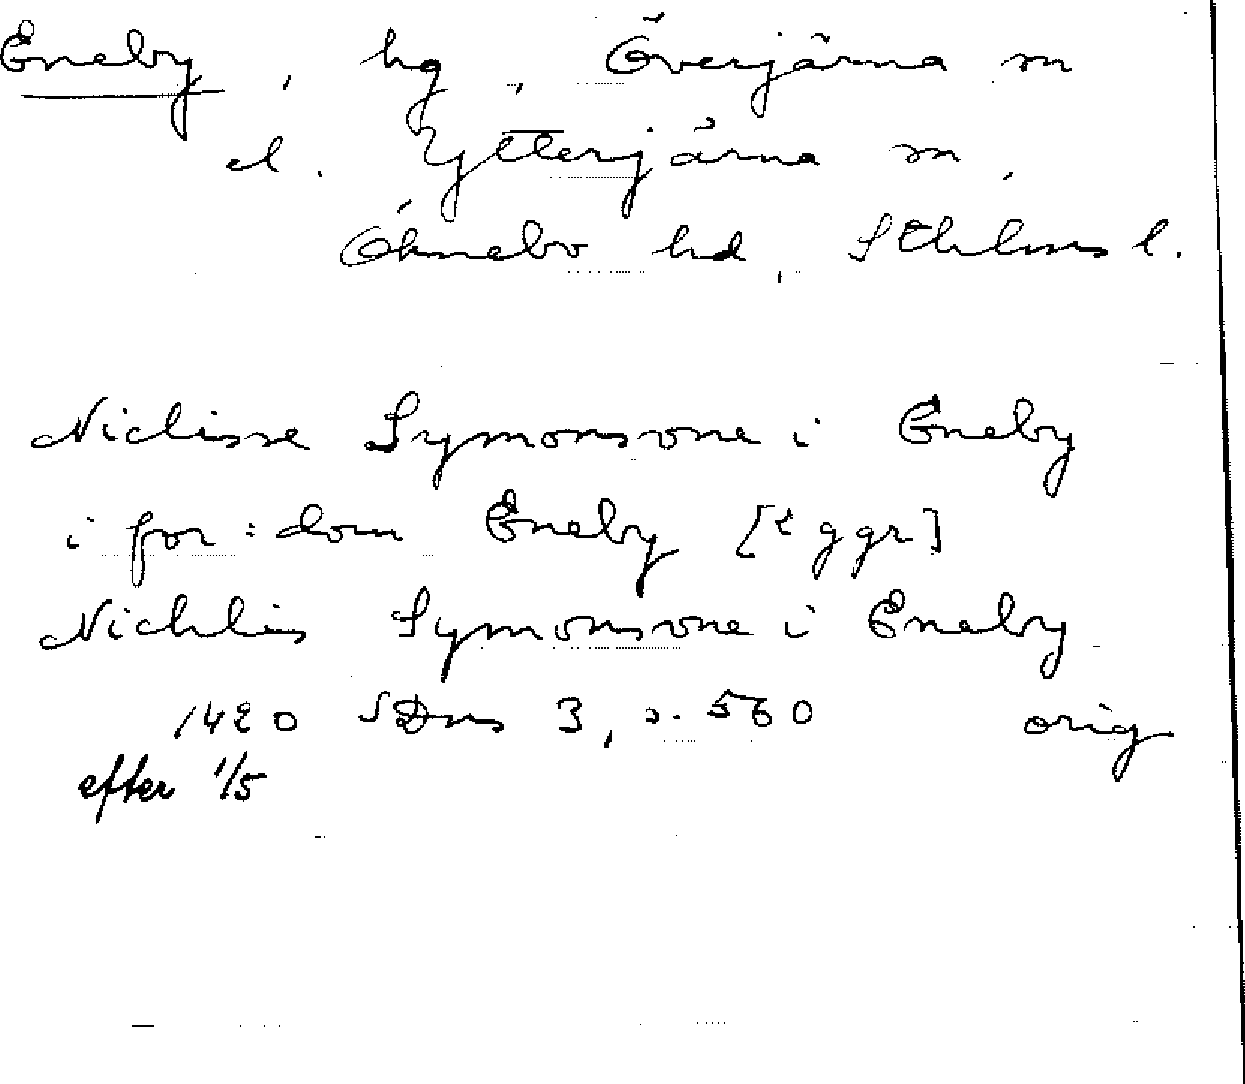 Eneby, hg, Överjärna sn
el. Ytterjärna sn,
Öknebo hd, Sthlms l.
Niclisse Symonsone i Eneby
i for:dom Eneby [2 ggr]
Nichlis Symonsone i Eneby
1420 SDns 3, s. 560 orig
efter 1/5